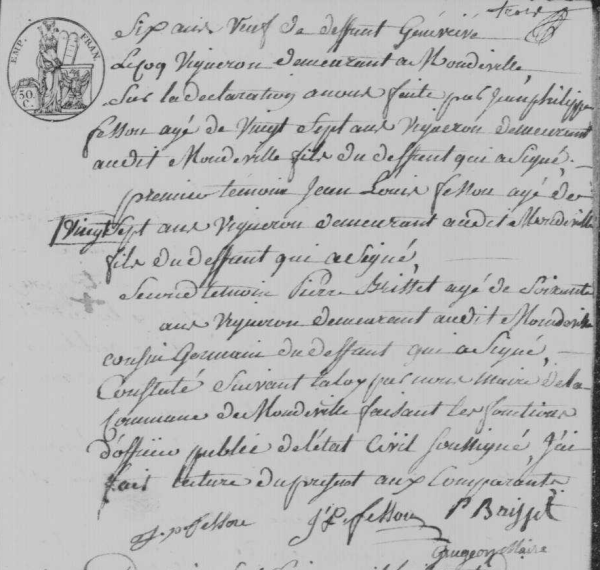 EMP. FRAN.
50. C.
Six ans Veuf de deffunt Genevieve
Lecoq Vigneron demeurant a Mondeville
Sur la declaration a nous faite par Jean philippe
fesson agé de Vingt Sept ans Vigneron demeurant
audit Mondeville fils du deffunt qui a Signé.
premier temoin Jean Louis fesson agé de
Vingt Sept ans Vigneron demeurant audit Mondeville
fils du deffunt qui a Signé
Second temoin Pierre Brisset agé de Soixante
ans Vigneron demeurant audit Mondeville
cousin Germain du deffunt qui a Signé.
Constaté Suivant la loy par nous maire de la
Commune de Mondeville faisant les fonctions
d'officier publie de l'état Civil Soussigné J'ai
fait lecture du present aux Comparants
j. p fesson J L fesson P Brisset
Maire